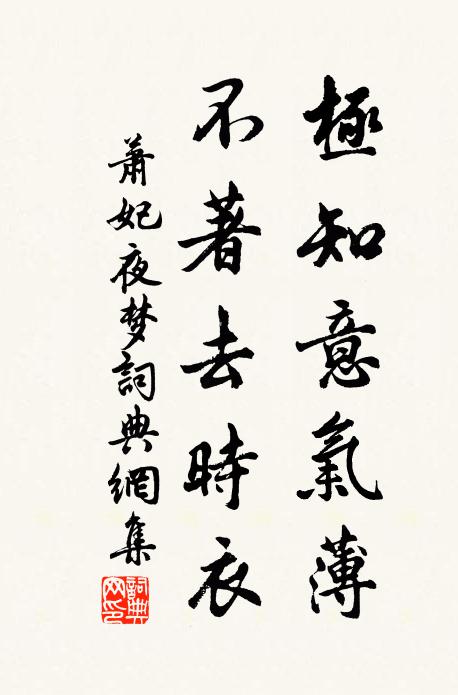 極知意氣薄
不著去時衣
蕭妃夜梦詞典網集
詞典
网印